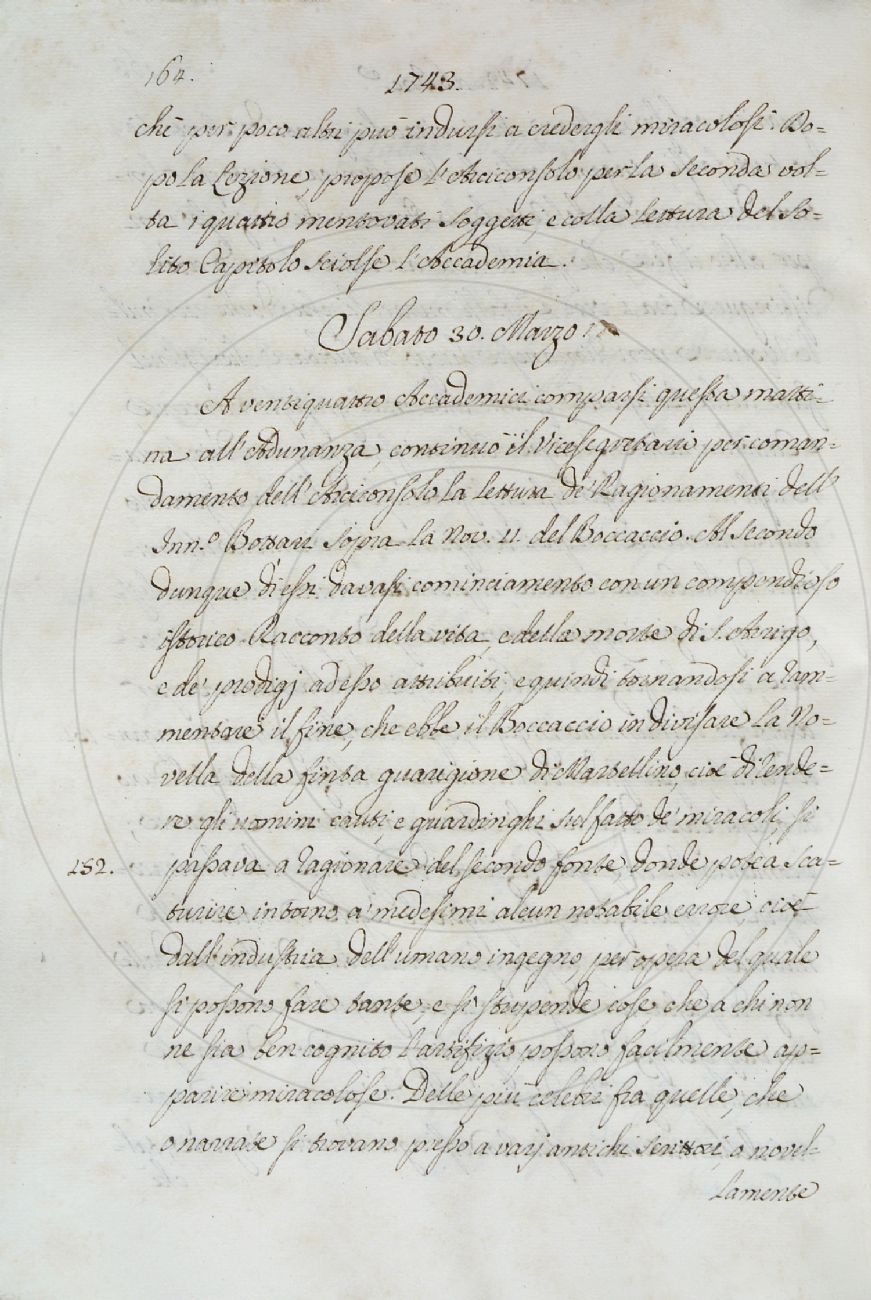 164.
1743.
chè per poco altri può indursi a credergli miracolosi. Do=
po la Lezione, propose l'Arciconsolo per la seconda vol=
ta i quattro mentovati Soggetti, e colla Lettura del So=
lito Capitolo sciolse l'Accademia.
Sabato 30. Marzo
A ventiquattro Accademici comparsi questa matti=
na all'Adunanza, continuò il Vicesegretario per coman=
damento dell'Arciconsolo la lettura de' Ragionamenti dell'
Inn.º Bottari sopra la Nov. 11. del Boccaccio. Al secondo
dunque di essi davasi cominciamento con un compendioso
istorico Racconto della vita, e della morte di S. Arrigo,
e de' prodigj ad esso attribuiti, e quindi tornandosi a ram=
mentare il fine, che ebbe il Boccaccio in divisare la No=
vella della finta guarigione di Martellino, cioè di rende=
re gli uomini cauti, e guardinghi sul fatto de' miracoli, si
152. passava a ragionare del secondo fonte, donde potea sca=
turire intorno a' medesimi alcun notabile errore, cioè
dall'industria dell'umano ingegno, per opera del quale
si possono fare tante, e sì stupende cose che a chi non
ne sia ben cognito l'artifizio possono facilmente ap=
parire miracolose. Delle più celebri fra quelle, che
o narrate si trovano presso a varj antichi scrittori, o novel=
lamente